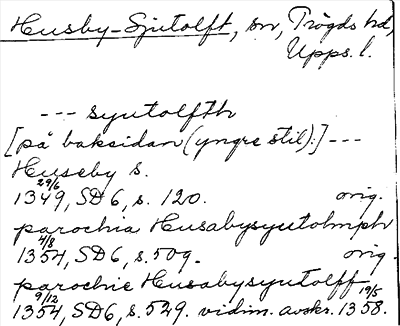 Husby-Sjutolft, sn, Trögds hd,
Upps. l.
--- syutolfth
[på baksidan (yngre stil):] ---
Huseby s.
1349 29/6, SD6, s. 120. orig.
parochia Husabysyutolmph
1354 4/8, SD6, s. 509. orig.
parochie Husabysyutolff
1354 9/12, SD6, s. 549. vidim. avskr. 1358 19/5.